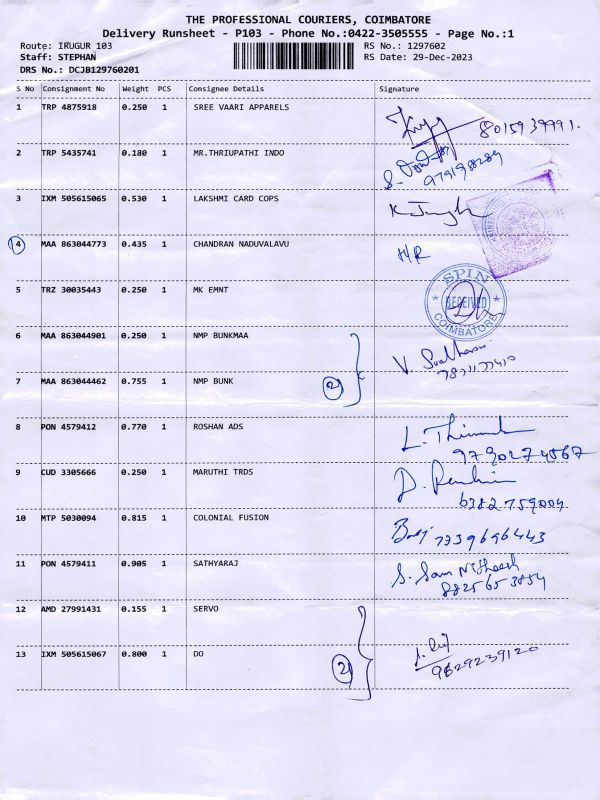 THE PROFESSIONAL COURIERS, COIMBATORE
Delivery Runsheet - P103 - Phone No.:0422-3505555 - Page No.:1
Route: IRUGUR 103 RS No.: 1297602
Staff: STEPHAN RS Date: 29-Dec-2023
DRS No.: DCJB129760201
S No Consignment No Weight PCS Consignee Details Signature
1 TRP 4875918 0.250 1 SREE VAARI APPARELS 8015939991.
2 TRP 5435741 0.180 1 MR.THRIUPATHI INDO
3 IXM 505615065 0.530 1 LAKSHMI CARD COPS
4 MAA 863044773 0.435 1 CHANDRAN NADUVALAVU H/R
5 TRZ 30035443 0.250 1 MK EMNT
SPIN
RECEIVED
COIMBATORE
6 MAA 863044901 0.250 1 NMP BUNKMAA
7 MAA 863044462 0.755 1 NMP BUNK 2
8 PON 4579412 0.770 1 ROSHAN ADS
9790274567
9 CUD 3305666 0.250 1 MARUTHI TRDS
6382759004
10 MTP 5030094 0.815 1 COLONIAL FUSION 7339696443
11 PON 4579411 0.905 1 SATHYARAJ
8825653854
12 AMD 27991431 0.155 1 SERVO
13 IXM 505615067 0.800 1 DO 2
9629239120